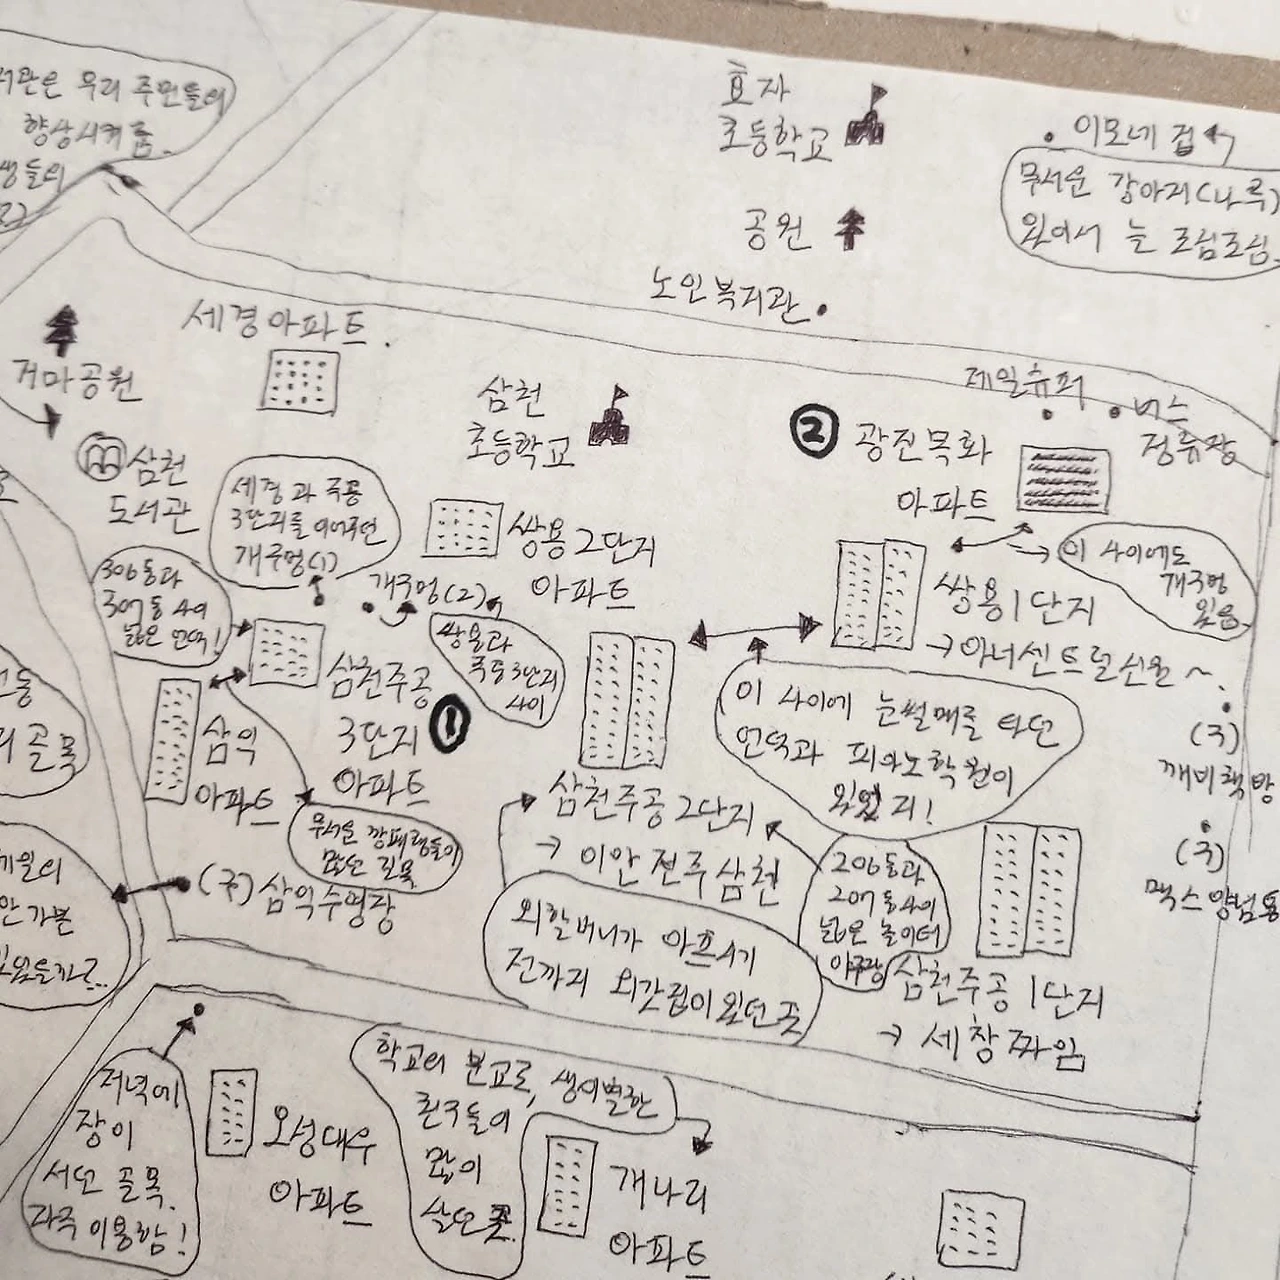 우리 주민들의
향상시켜줌.
효자
초등학교
이모네 집
무서운 강아지(나루)
있어서 늘 조심조심.
공원
노인복지관
세경아파트
거마공원
삼천
초등학교
제일슈퍼
버스
정류장
② 광진목화
아파트
삼천
도서관
세경과 주공
3단지를 이어주던
개구멍(1)
쌍용2단지
아파트
개구멍(2)
쌍용과
주공3단지
사이
306동과
307동 사이
넓은 언덕!
이 사이에도
개구멍
있음
쌍용1단지
→ 이너센트럴신원~
삼천주공
3단지 ①
아파트
삼익
아파트
무서운 깡패형들이
많던 길목
(구)삼익수영장
이 사이에 눈썰매를 타던
언덕과 피아노학원이
있었지!
(구)
깨비책방
(구)
맥스양념통
삼천주공 2단지
→ 이안 전주삼천
206동과
207동 사이
넓은 놀이터
야구장
외할머니가 아프시기
전까지 외갓집이 있던 곳
삼천주공 1단지
→ 세창짜임
골목
안가본
저녁에
장이
서던 골목.
자주 이용함!
오성대우
아파트
학교의 분교로, 생이별한
친구들이
많이
살던 곳.
개나리
아파트